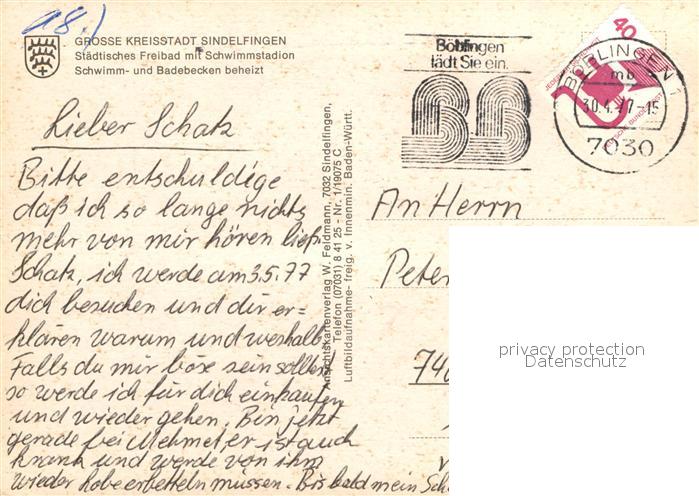 18.)
GROSSE KREISSTADT SINDELFINGEN
Städtisches Freibad mit Schwimmstadion
Schwimm- und Badebecken beheizt
Lieber Schatz
Bitte entschuldige
daß ich so lange nichts
mehr von mir hören ließ.
Schatz, ich werde am 3.5.77
dich besuchen und dir er=
klären warum und weshalb.
Falls du mir böse sein solltest
so werde ich für dich einkaufen
und wieder gehen. Bin jetzt
gerade bei Mehmet, er ist auch
krank und werde von ihm
wieder hobe erbetteln müssen. Bis bald mein Sch
Ansichtskartenverlag W. Feldmann, 7032 Sindelfingen,
Telefon (07031) 8 41 25 - Nr. 1/19075 C
Luftbildaufnahme- freig. v. Innenmin. Baden-Württ.
Böblingen
lädt Sie ein.
BB
40
BÖBLINGEN 1
mb
30.4.77-15
7030
An Herrn
Peter
740
privacy protection
Datenschutz